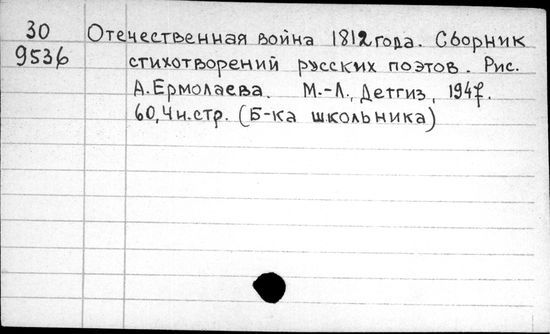 30 Отечественная война 1812 года. Сборник
9536 стихотворений русских поэтов. Рис.
А. Ермолаева. М.-Л., Детгиз, 1947.
60,4 н.стр. (Б-ка школьника)